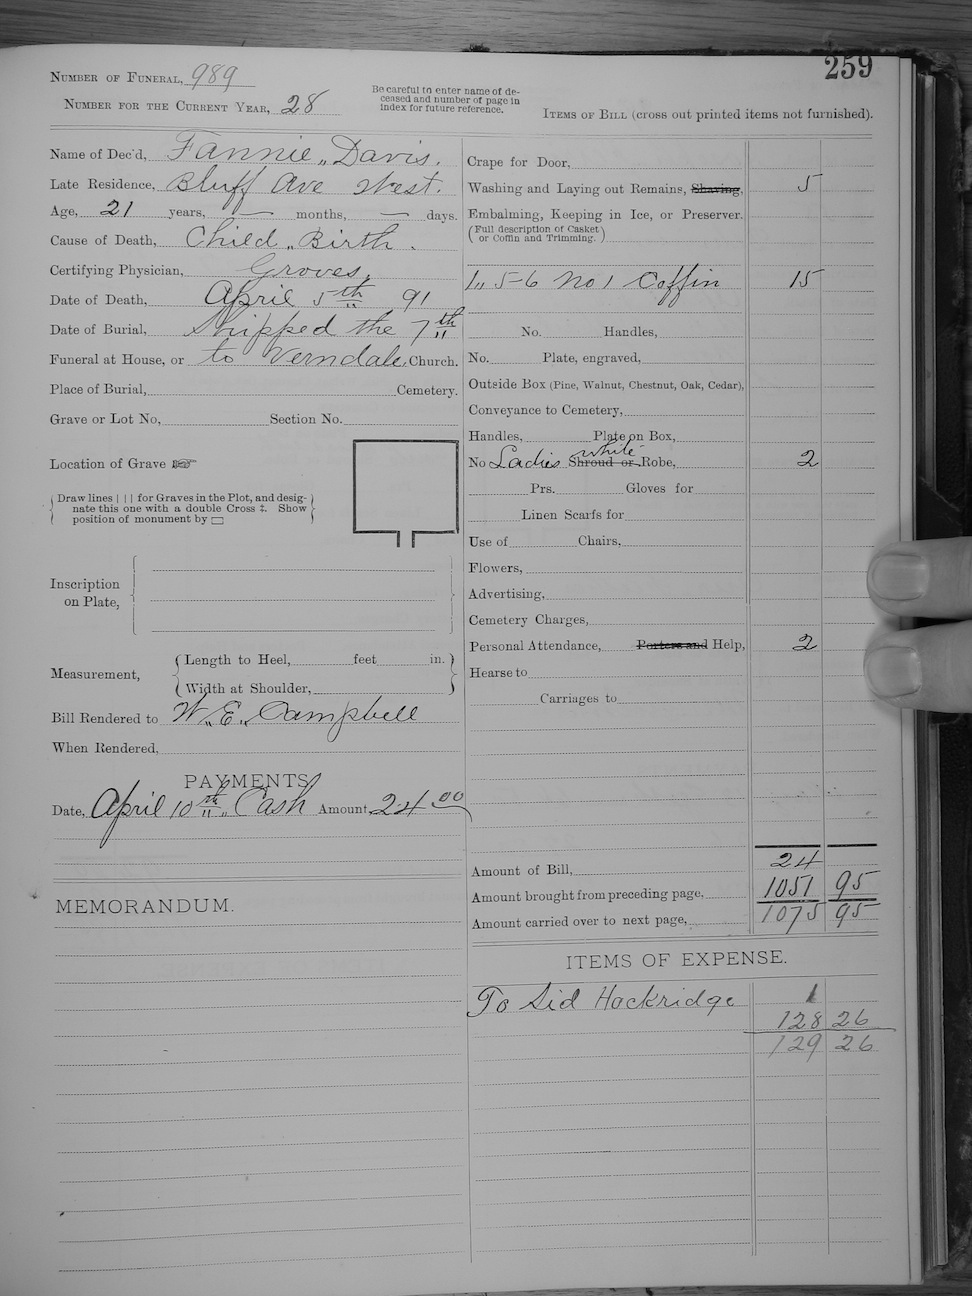 259
NUMBER OF FUNERAL, 989
NUMBER FOR THE CURRENT YEAR, 28
Be careful to enter name of de-
ceased and number of page in
index for future reference.
ITEMS OF BILL (cross out printed items not furnished).
Name of Dec'd, Fannie „ Davis.
Late Residence, Bluff Ave West.
Age, 21 years, — months, — days.
Cause of Death, Child „ Birth .
Certifying Physician, Groves,
Date of Death, April 5th 91
Date of Burial, Shipped the 7th
Funeral at House, or to Verndale Church.
Place of Burial, Cemetery.
Grave or Lot No, Section No.
Location of Grave ☞
Draw lines | | | for Graves in the Plot, and desig-
nate this one with a double Cross ‡. Show
position of monument by ▭
Inscription
on Plate,
Measurement,
Length to Heel, feet in.
Width at Shoulder,
Bill Rendered to W. E. Campbell
When Rendered,
PAYMENTS
Date, April 10th „ Cash Amount 24 00
MEMORANDUM.
Crape for Door,
Washing and Laying out Remains, Shaving, 5
Embalming, Keeping in Ice, or Preserver.
(Full description of Casket
or Coffin and Trimming.)
1„ 5-6 No 1 Coffin 15
No. Handles,
No. Plate, engraved,
Outside Box (Pine, Walnut, Chestnut, Oak, Cedar),
Conveyance to Cemetery,
Handles, Plate on Box,
white
No Ladies Shroud or Robe, 2
Prs. Gloves for
Linen Scarfs for
Use of Chairs,
Flowers,
Advertising,
Cemetery Charges,
Personal Attendance, Porters and Help, 2
Hearse to
Carriages to
Amount of Bill, 24
Amount brought from preceding page, 1051 95
Amount carried over to next page, 1075 95
ITEMS OF EXPENSE.
To Sid Hockridge 1
128 26
129 26